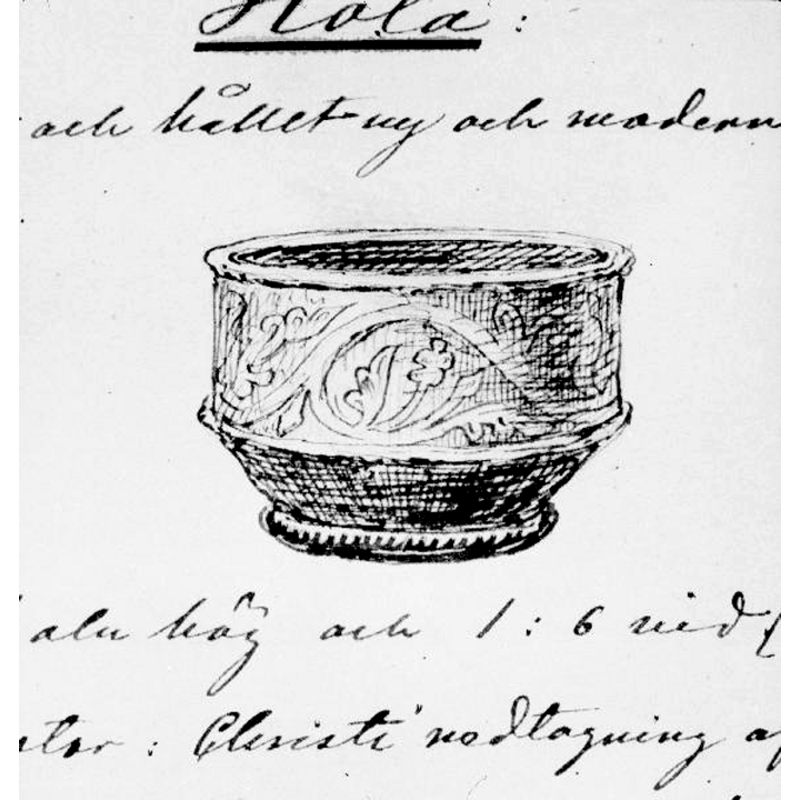 Hola:
och hållet ny och modern
aln hög och 1:6 vid (
Christi nedtagning af